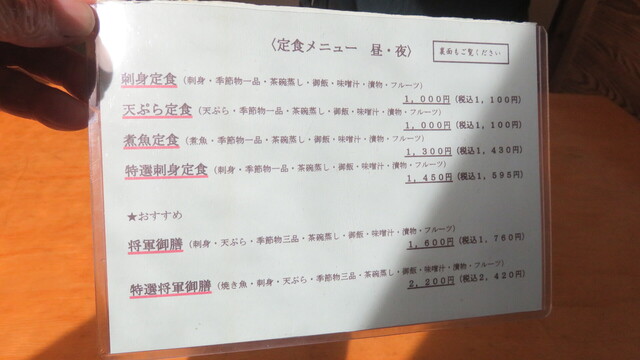 〈定食メニュー 昼・夜〉
裏面もご覧ください
刺身定食（刺身・季節物一品・茶碗蒸し・御飯・味噌汁・漬物・フルーツ）
1,000円（税込1,100円）
天ぷら定食（天ぷら・季節物一品・茶碗蒸し・御飯・味噌汁・漬物・フルーツ）
1,000円（税込1,100円）
煮魚定食（煮魚・季節物一品・茶碗蒸し・御飯・味噌汁・漬物・フルーツ）
1,300円（税込1,430円）
特選刺身定食（刺身・季節物一品・茶碗蒸し・御飯・味噌汁・漬物・フルーツ）
1,450円（税込1,595円）
★おすすめ
将軍御膳（刺身・天ぷら・季節物三品・茶碗蒸し・御飯・味噌汁・漬物・フルーツ）
1,600円（税込1,760円）
特選将軍御膳（焼き魚・刺身・天ぷら・季節物三品・茶碗蒸し・御飯・味噌汁・漬物・フルーツ）
2,200円（税込2,420円）